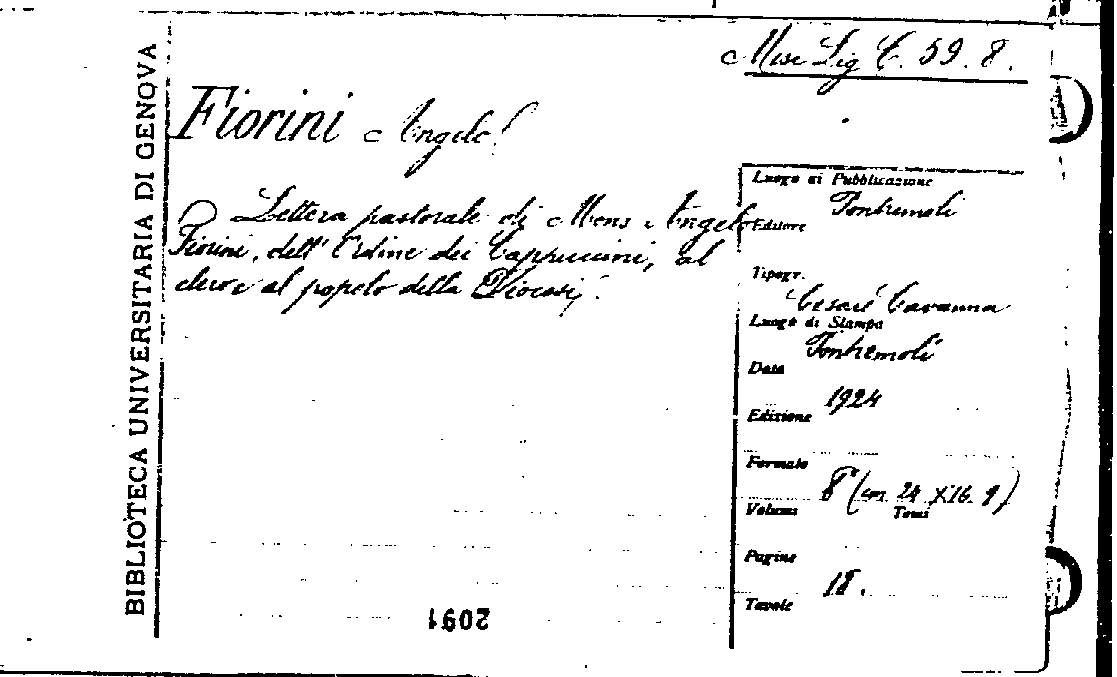 BIBLIOTECA UNIVERSITARIA DI GENOVA
Misc Lig C. 59. 8.
Fiorini Angelo
Lettera pastorale di Mons Angelo
Fiorini, dell'Ordine dei Cappuccini, al
clero e al popolo della Diocesi.
Luogo di Pubblicazione
Pontremoli
Editore
Tipogr.
Cesare Cavanna
Luogo di Stampa
Pontremoli
Data
1924
Edizione
Formato
8° (cm 24 x 16.9)
Volumi Tomi
Pagine
18.
Tavole
2091